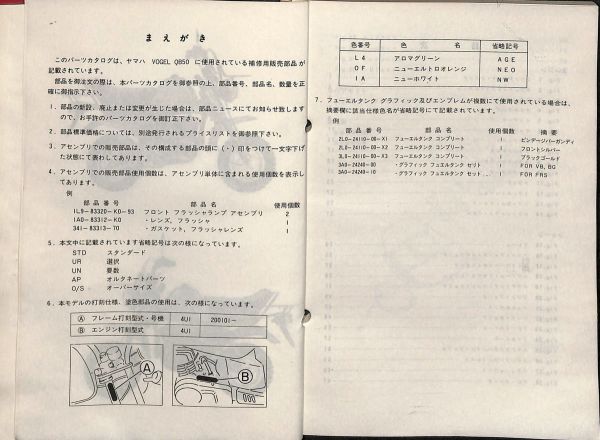 まえがき
このパーツカタログは、ヤマハ VOGEL QB50 に使用されている補修用販売部品が
記載されています。
部品を御注文の際は、本パーツカタログを御参照の上、部品番号、部品名、数量を正
確に御指示下さい。
1. 部品の新設、廃止または変更が生じた場合は、部品ニュースにてお知らせ致します
ので、お手許のパーツカタログを御訂正下さい。
2. 部品標準価格については、別途発行されるプライスリストを御参照下さい。
3. アセンブリでの販売部品は、その構成する部品の頭に（・）印をつけて一文字下げ
た状態にて表わしてあります。
4. アセンブリでの販売部品使用個数は、アセンブリ単体に含まれる使用個数を表示し
てあります。
例
部品番号 部品名 使用個数
1L9-83320-K0-93 フロント フラッシャランプ アセンブリ 2
1A0-83312-K0 ・レンズ, フラッシャ 1
341-83313-70 ・ガスケット, フラッシャレンズ 1
5. 本文中に記載されています省略記号は次の様になっています。
STD スタンダード
UR 選択
UN 要数
AP オルタネートパーツ
O/S オーバーサイズ
6. 本モデルの打刻仕様、塗色部品の使用は、次の様になっています。
Ⓐ フレーム打刻型式・号機 4U1 200101~
Ⓑ エンジン打刻型式 4U1
Ⓐ
Ⓑ
色番号 色名 省略記号
L4 アロマグリーン AGE
OF ニューエルトロオレンジ NEO
IA ニューホワイト NW
7. フューエルタンク グラフィック及びエンブレムが複数にて使用されている場合は、
摘要欄に該当仕様色名が省略記号にて記載されています。
例
部品番号 部品名 使用個数 摘要
2L0-24110-00-X1 フューエルタンク コンプリート 1 ビンテージバーガンディ
2L0-24110-00-X2 フューエルタンク コンプリート 1 フロントシルバー
3L0-24110-00-X3 フューエルタンク コンプリート 1 ブラックゴールド
3A0-24240-00 ・グラフィック フューエルタンク セット 1 FOR VB, BG
3A0-24240-10 ・グラフィック フューエルタンク セット 1 FOR FRS